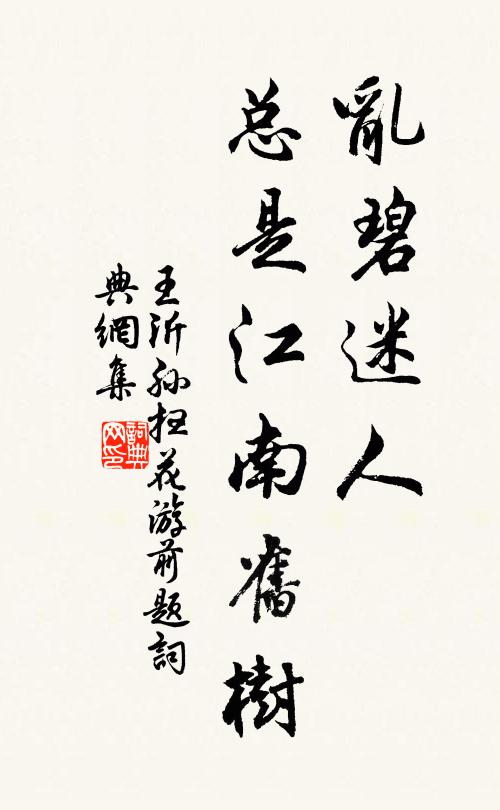 亂碧迷人
总是江南舊樹
王沂孙扫花游前题詞
典網集
詞典网印